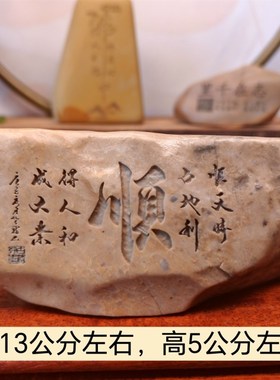 志在千里
天時
地利
順
得人和
成大業
13公分左右，高5公分左